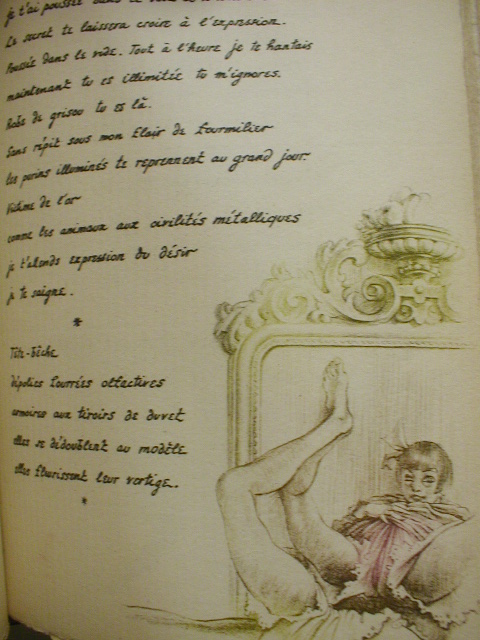 je t'ai poussée dans le
Le secret te laissera croire à l'expression.
Poussée dans le vide. Tout à l'heure je te hantais
maintenant tu es illimitée tu m'ignores.
Robe de grisou tu es là.
Sans répit sous mon flair de fourmilier
tes purins illuminés te reprennent au grand jour.
Victime de l'or
comme les animaux aux civilités métalliques
je t'attends expression du désir
je te saigne.
*
Tête-bêche
dépolies fourrées olfactives
armoires aux tiroirs de duvet
elles se dédoublent au modèle
elles fleurissent leur vertige.
*